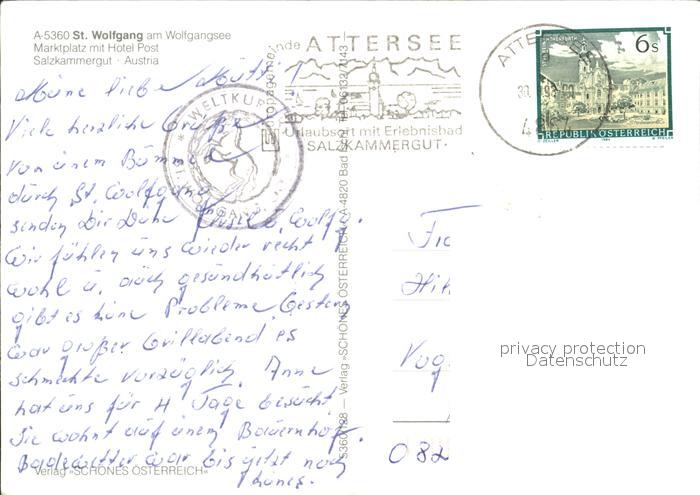 A-5360 St. Wolfgang am Wolfgangsee
Marktplatz mit Hotel Post
Salzkammergut · Austria
Meine liebe Mutti!
Viele herzliche Grüße
von einem Bummel
durch St. Wolfgang
senden Dir Deine u. Wolfg.
Wir fühlen uns wieder recht
wohl u. auch gesundheitlich
gibt es keine Probleme. Gestern
war großer Grillabend es
schmeckte vorzüglich. Anne
hat uns für 4 Tage besucht.
Sie wohnt auf einem Bauernhof.
Badewetter war bis jetzt noch
keines.
Verlag »SCHÖNES ÖSTERREICH«
WELTKUR
ATTERSEE
Urlaubsort mit Erlebnisbad
SALZKAMMERGUT·
S5360/128 — Verlag »SCHÖNES ÖSTERREICH« A-4820 Bad Ischl, Tel. 06132/7143
ATTERSEE
30.
6 S
REPUBLIK ÖSTERREICH
privacy protection
Datenschutz
Vog
082